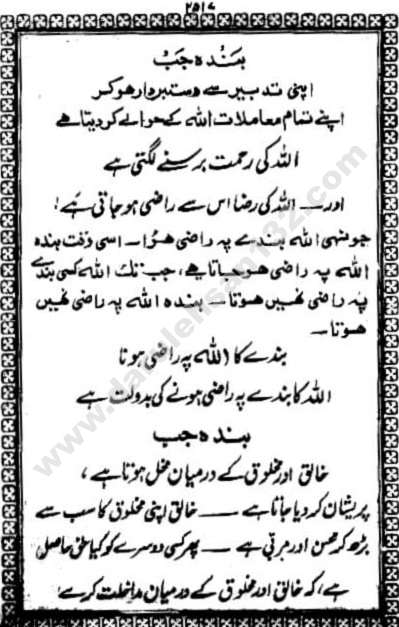 ۲۵۱۶
بندہ جب
اپنی تدبیر سے دستبردار ہوکر
اپنے تمام معاملات اللہ کے حوالے کردیتا ہے
اللہ کی رحمت برسنے لگتی ہے
اور — اللہ کی رضا اس سے راضی ہوجاتی ہے!
جونہی اللہ بندے پہ راضی ھوا۔ اسی وقت بندہ
اللہ پہ راضی ھوجاتا ہے، جب تک اللہ کسی بندے
پہ راضی نہیں ھوتا۔ بندہ اللہ پہ راضی نہیں
ھوتا۔
بندے کا اللہ پہ راضی ہونا
اللہ کا بندے پہ راضی ہونے کی بدولت ہے
بندہ جب
خالق اور مخلوق کے درمیان مخل ہوتا ہے،
پریشان کردیا جاتا ہے — خالق اپنی مخلوق کا سب سے
بڑھ کر محسن اور مربّی ہے — پھر کسی دوسرے کو کیا حق حاصل
ہے، کہ خالق اور مخلوق کے درمیان مداخلت کرے!
www.darulehsan132.com